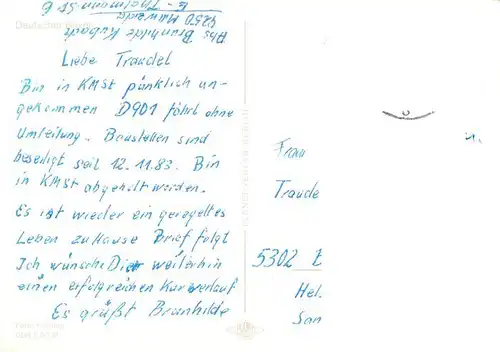 Abs Brunhilde Kubach
4250 Merseburg
E-Thälmann-Str 6
Liebe Traudel
Bin in KMSt pünklich an-
gekommen D901 fährt ohne
Umleitung. Baustellen sind
beseitigt seit 12.11.83. Bin
in KMSt abgeholt worden.
Es ist wieder ein geregeltes
Leben zu Hause Brief folgt
Ich wünsche Dir weiterhin
einen erfolgreichen Kurverlauf
Es grüßt Brunhilde
Frau
Traude
5302 B
Hel.
San